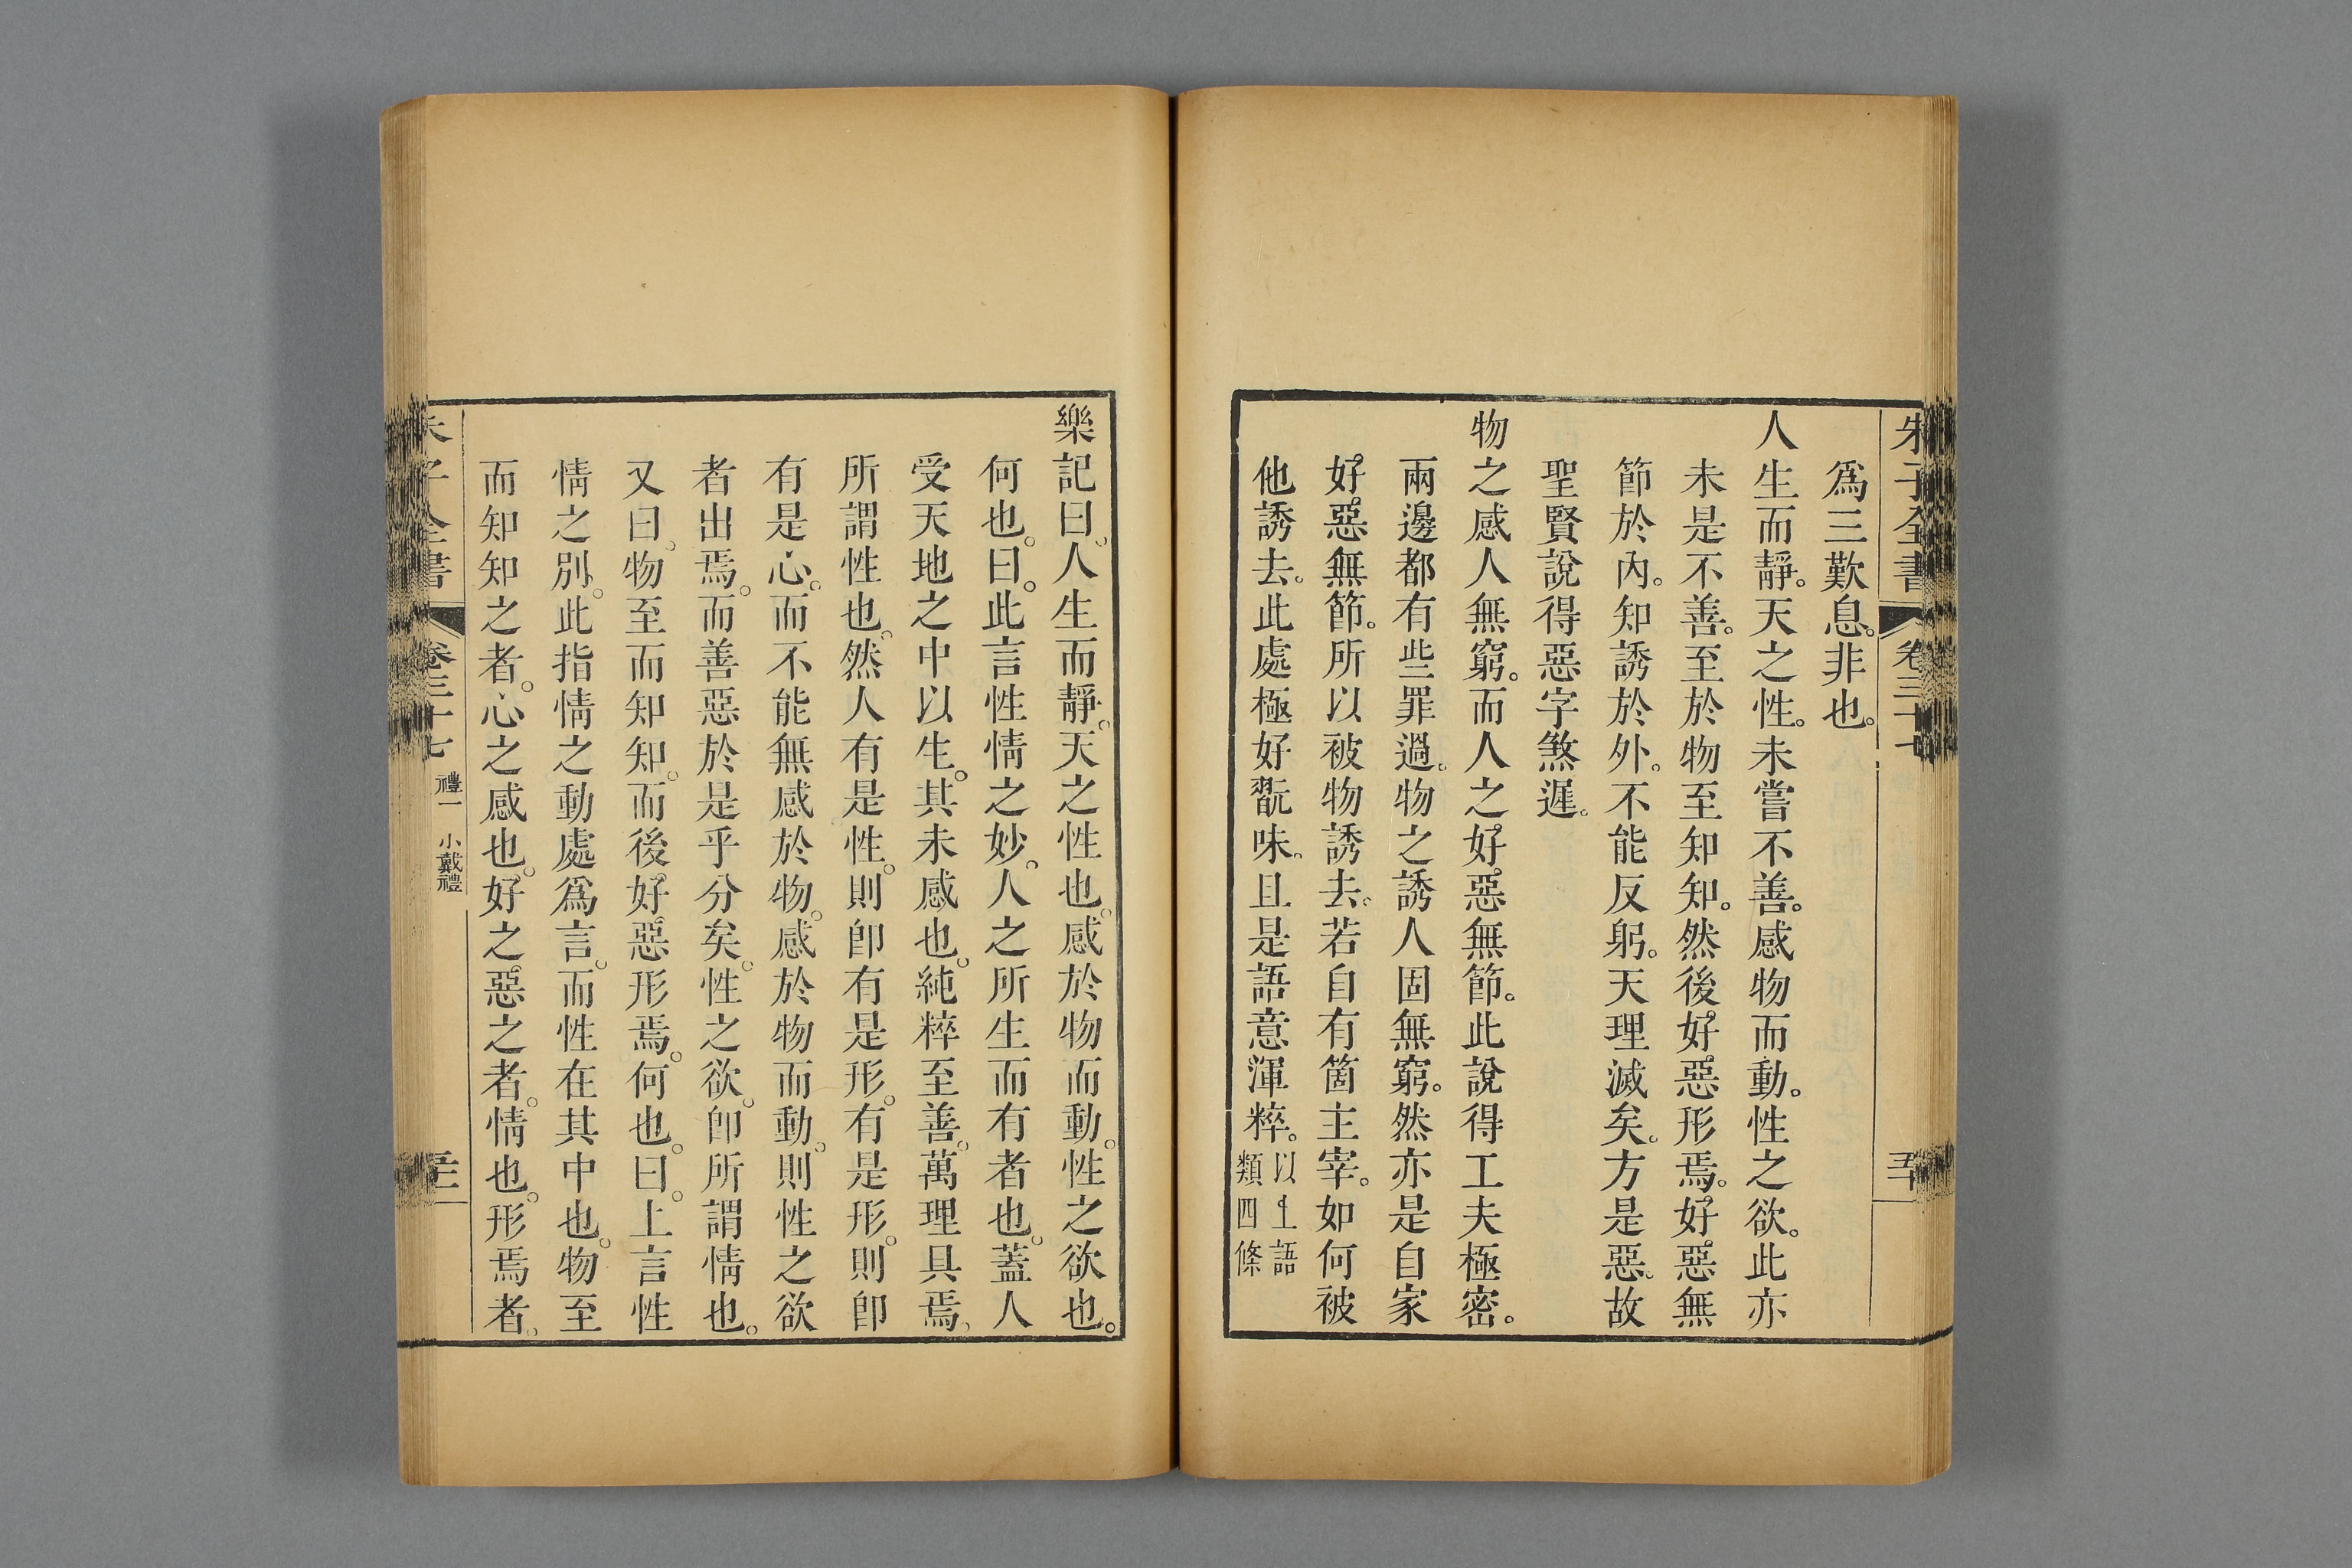 朱子全書
卷三十七
爲三歎息。非也。
人生而靜。天之性。未嘗不善。感物而動。性之欲。此亦
未是不善。至於物至知知。然後好惡形焉。好惡無
節於內。知誘於外。不能反躬。天理滅矣。方是惡。故
聖賢說得惡字煞遲。
物之感人無窮。而人之好惡無節。此說得工夫極密。
兩邊都有些罪過。物之誘人固無窮。然亦是自家
好惡無節。所以被物誘去。若自有箇主宰。如何被
他誘去。此處極好翫味。且是語意渾粹。以上語
類四條
樂記曰。人生而靜。天之性也。感於物而動。性之欲也。
何也。曰。此言性情之妙。人之所生而有者也。蓋人
受天地之中以生。其未感也。純粹至善。萬理具焉。
所謂性也。然人有是性。則卽有是形。有是形。則卽
有是心。而不能無感於物。感於物而動。則性之欲
者出焉。而善惡於是乎分矣。性之欲。卽所謂情也。
又曰。物至而知知。而後好惡形焉。何也。曰。上言性
情之別。此指情之動處爲言。而性在其中也。物至
而知知之者。心之感也。好之惡之者。情也。形焉者。
朱子全書
卷三十七
禮一 小戴禮